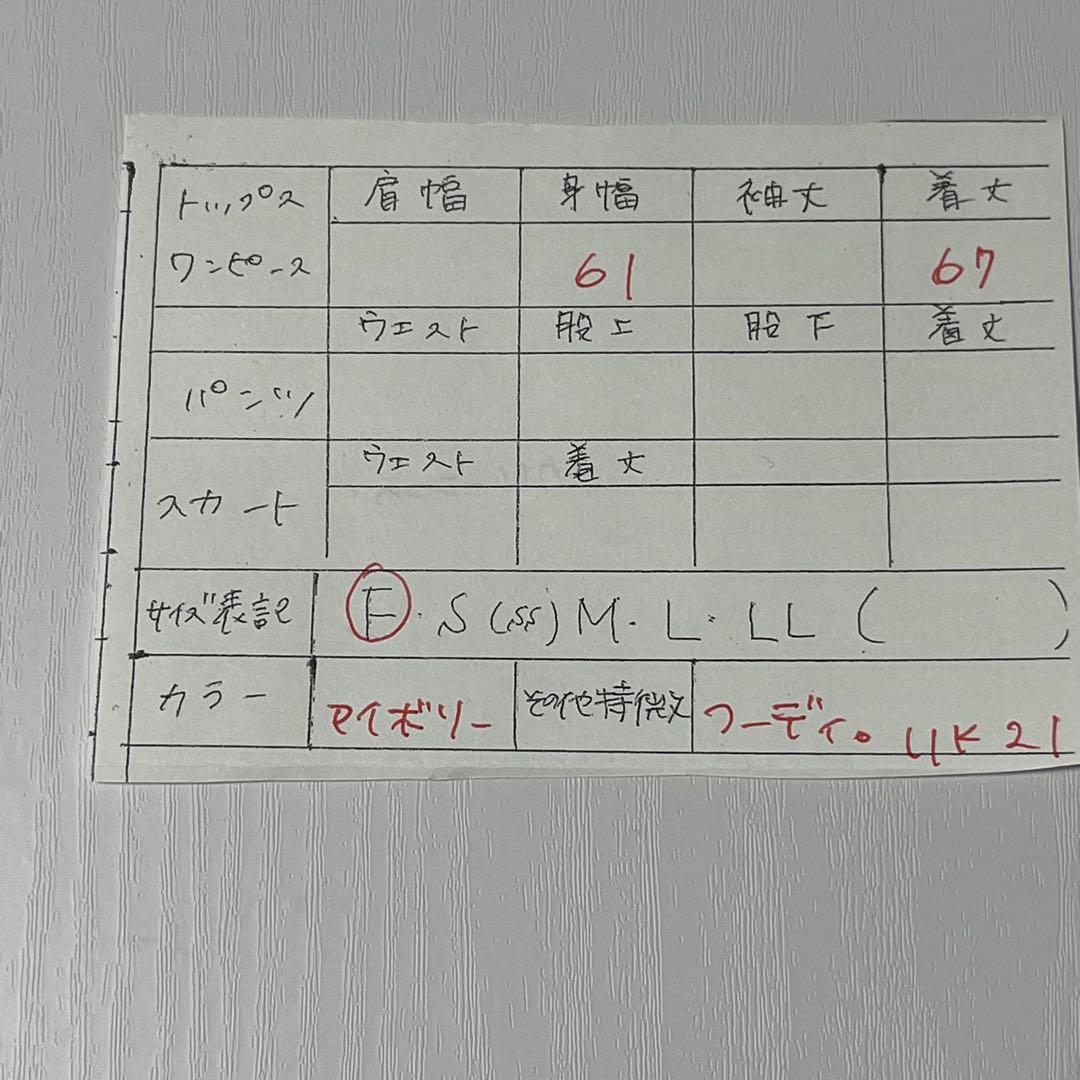 トップス 肩幅 身幅 袖丈 着丈
ワンピース 61 67
ウエスト 股上 股下 着丈
パンツ
ウエスト 着丈
スカート
サイズ表記 F・S(SS)M・L・LL( )
カラー アイボリー その他特徴 フーディ。UK21